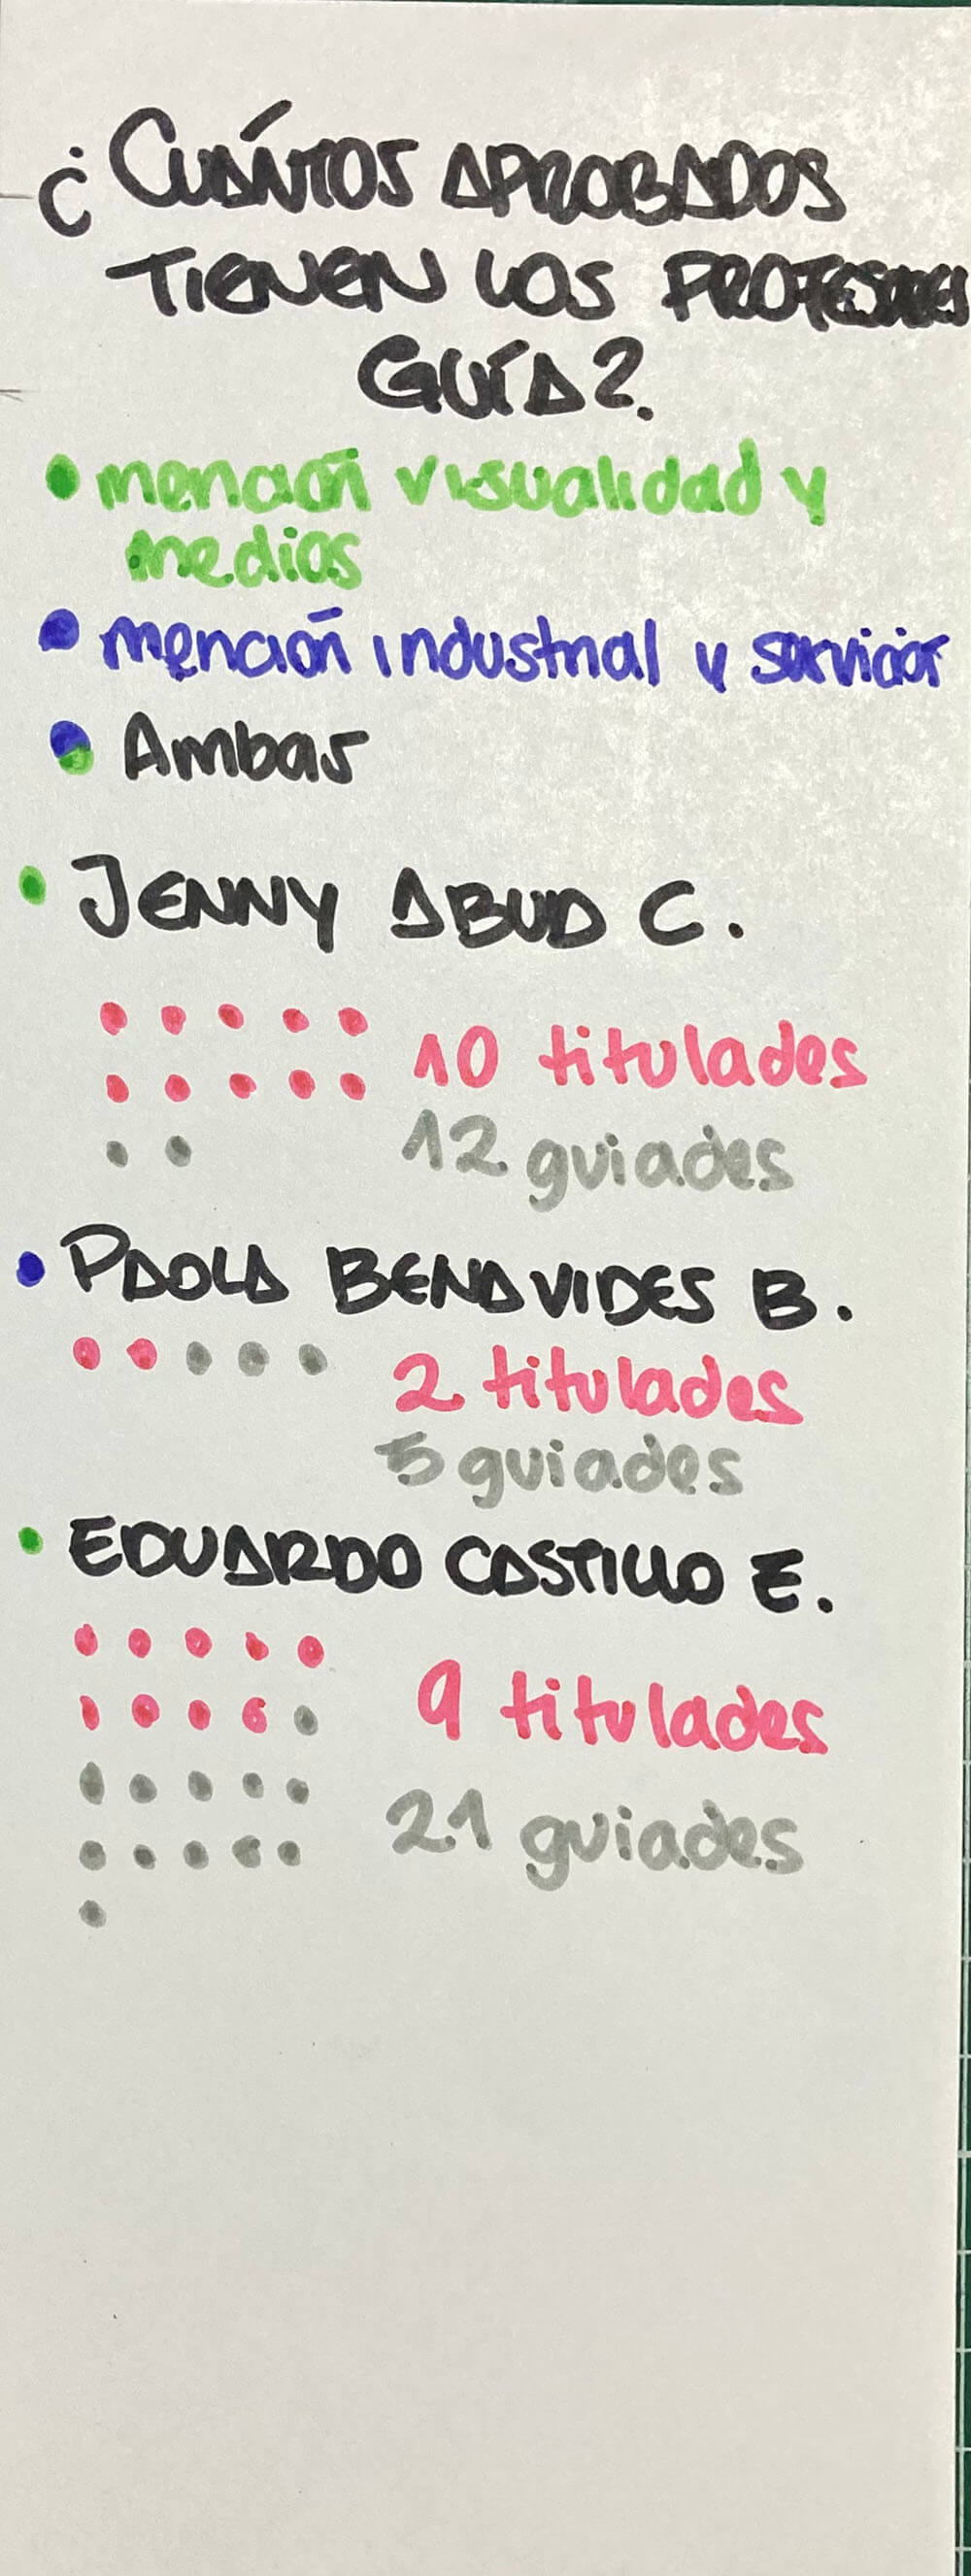 ¿CUÁNTOS APROBADOS
TIENEN LOS PROFESORES
GUÍA?
mención visualidad y
medios
mención industrial y servicios
Ambas
JENNY ABUD C.
10 titulades
12 guiades
PAOLA BENAVIDES B.
2 titulades
5 guiades
EDUARDO CASTILLO E.
9 titulades
21 guiades